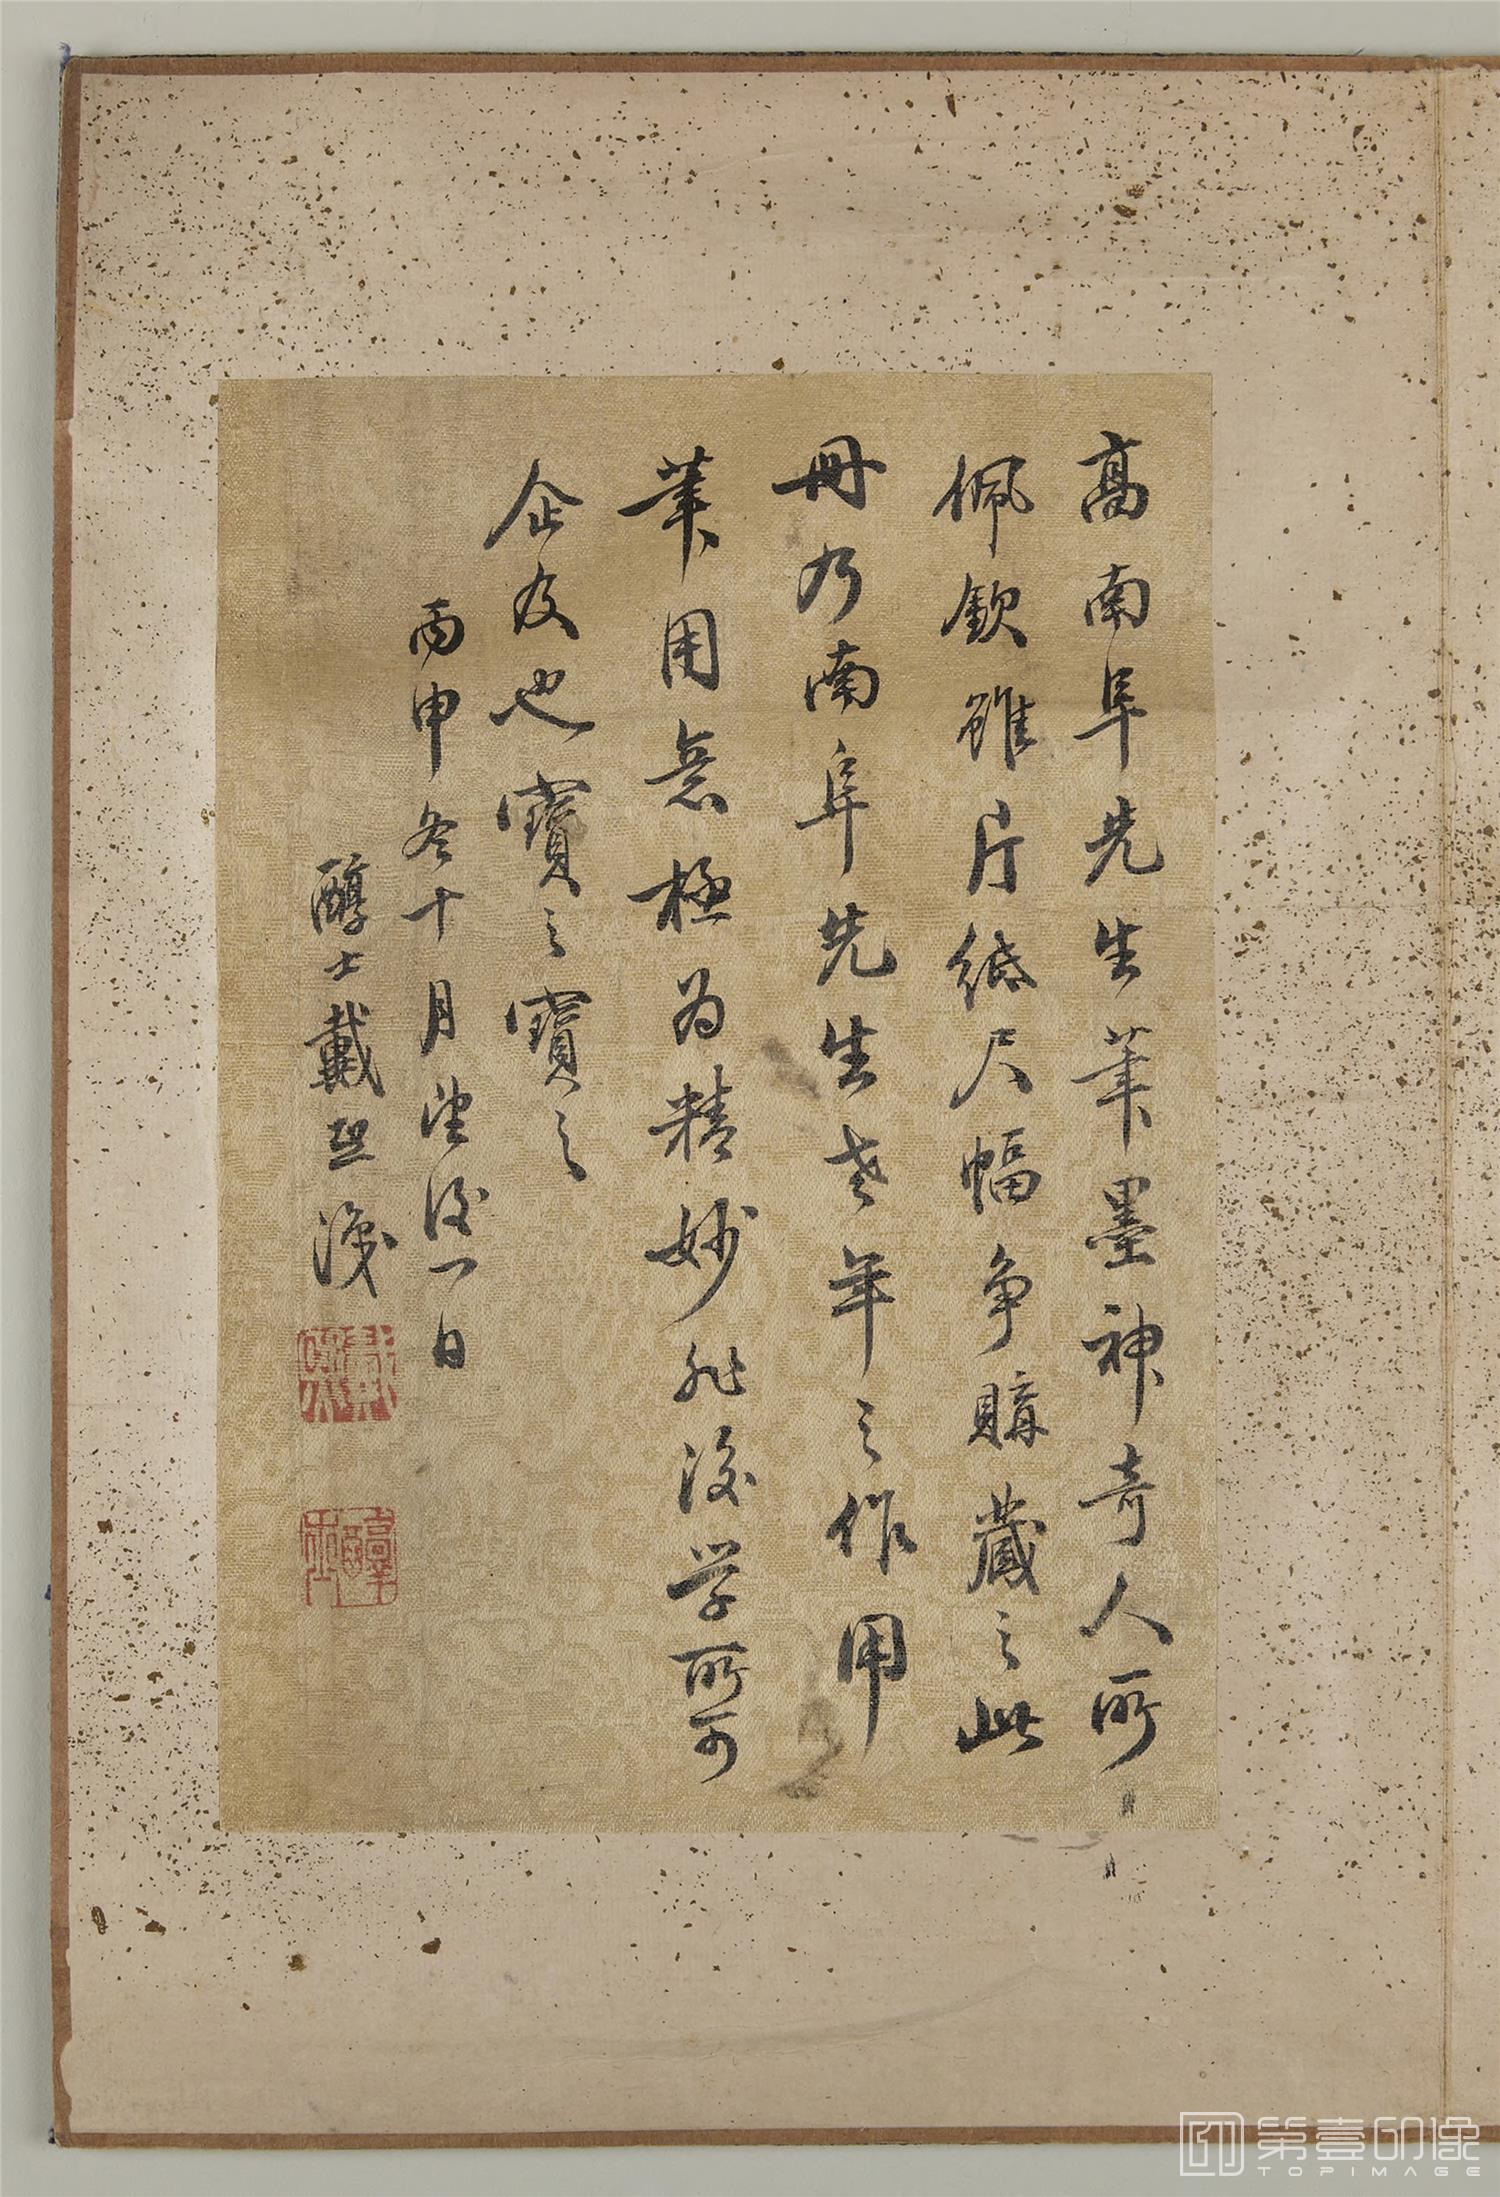 高南阜先生筆墨神奇人所
佩欽雖片紙尺幅争購藏之此
冊乃南阜先生老年之作用
筆用意極為精妙非後学所可
企及也寶之寶之
丙申冬十月望後一日
醇士戴熙識
戴熙
醇士
第壹印像
TOPIMAGE